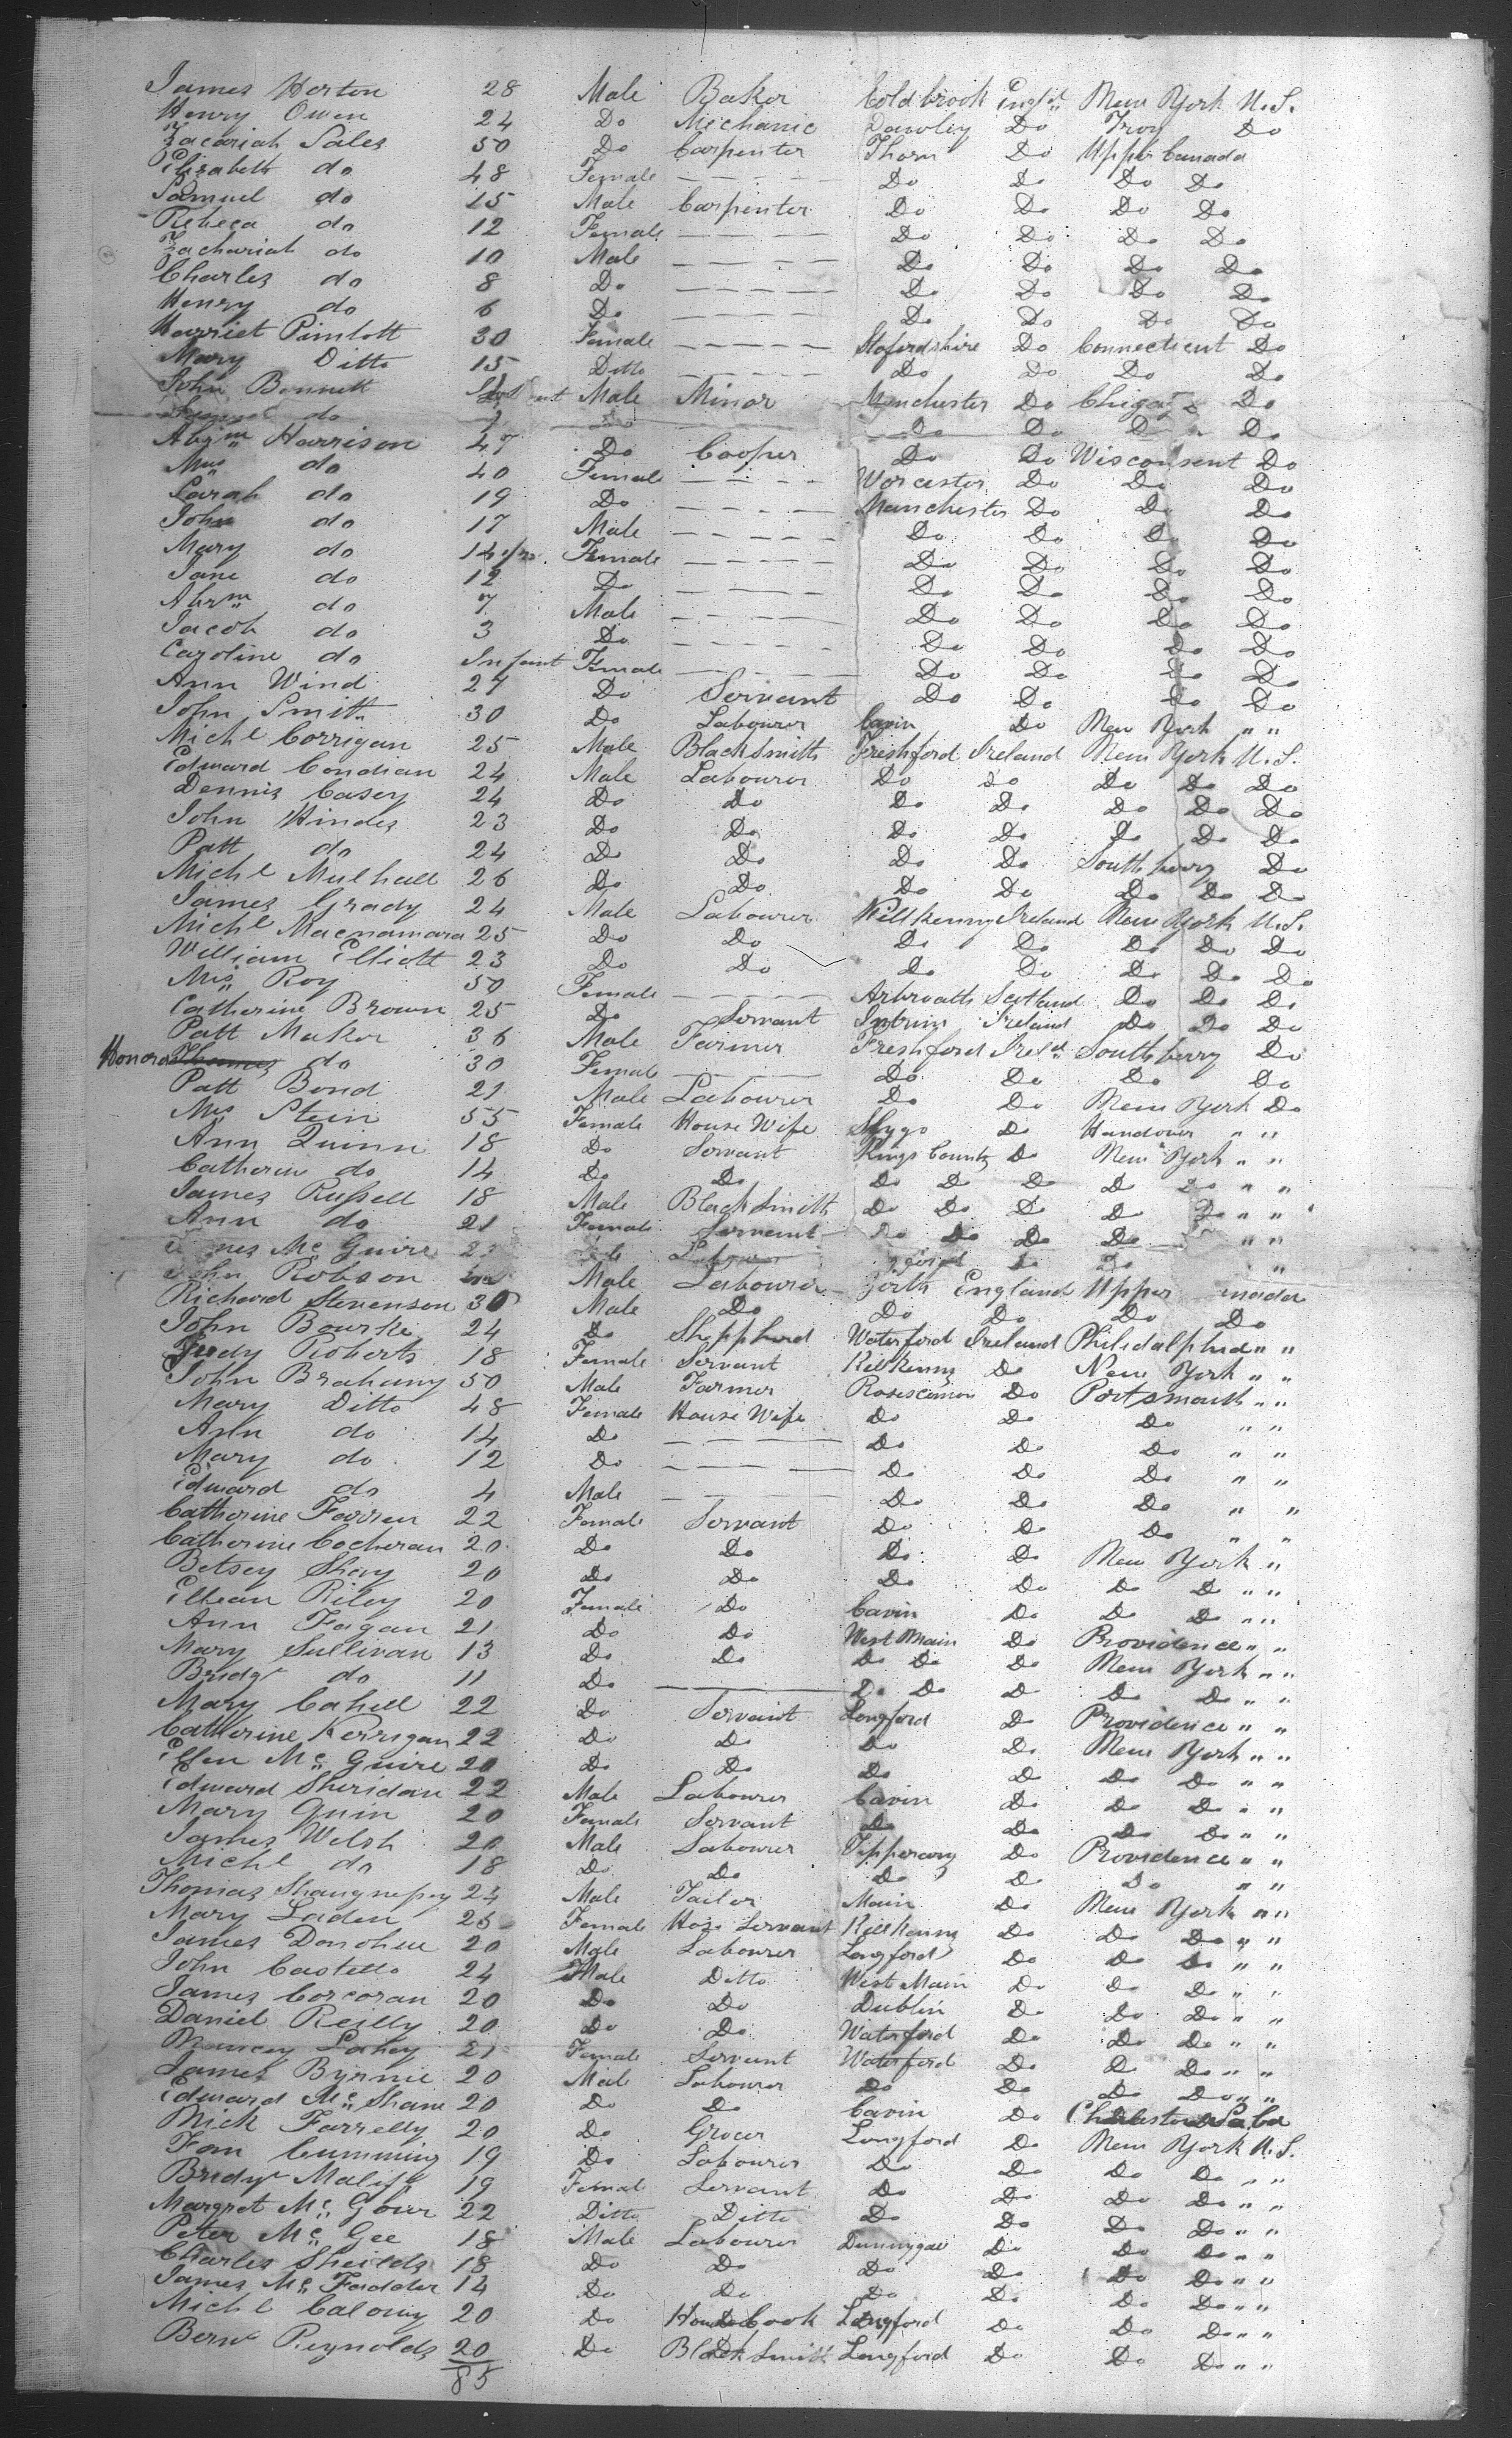 James Horton 28 Male Baker Coldbrook Engld New York U.S.
Henry Owen 24 Do Mechanic Dawley Do Troy Do
Zacariah Sales 50 Do Carpenter Thorn Do Upper Canada
Elizabeth do 48 Female — — — — Do Do Do Do
Samuel do 15 Male Carpenter Do Do Do Do
Rebeca do 12 Female — — — — Do Do Do Do
Zachariah do 10 Male — — — — Do Do Do Do
Charles do 8 Do — — — — Do Do Do Do
Henry do 6 Do — — — — Do Do Do Do
Harriet Pimlott 30 Female — — — — Stafordshire Do Connecticut Do
Mary Ditto 15 Ditto — — — — Do Do Do Do
John Bennett Male Minor Manchester Do Do
do Do Do Do Do
Abrm Harrison 47 Do Cooper Do Do Wisconsent Do
Mrs do 40 Female — — — — Worcester Do Do Do
Sarah do 19 Do — — — — Manchester Do Do Do
John do 17 Male — — — — Do Do Do Do
Mary do 14 Female — — — — Do Do Do Do
Jane do 12 Do — — — — Do Do Do Do
Abrm do 7 Male — — — — Do Do Do Do
Jacob do 3 Do — — — — Do Do Do Do
Caroline do Infant Female — — — — Do Do Do Do
Ann Wind 27 Do Servant Do Do Do Do
John Smith 30 Do Labourer Cavin Do New York " "
Michl Corrigan 25 Male BlackSmith Freshford Ireland New York U.S.
Edward Condian 24 Male Labourer Do Do Do Do Do
Dennis Casey 24 Do Do Do Do Do Do Do
John Hindes 23 Do Do Do Do Do Do Do
Patt do 24 Do Do Do Do Southberry Do
Michl Mulhall 26 Do Do Do Do Do Do Do
James Grady 24 Male Labourer Killkenny Ireland New York U.S.
Michl Macnamara 25 Do Do Do Do Do Do Do
William Elliott 23 Do Do Do Do Do Do Do
Mrs Roy 50 Female — — — — Arbroath Scotland Do Do Do
Catherine Brown 25 Do Servant Intrim Ireland Do Do Do
Patt Maker 36 Male Farmer Freshford Ireld Southberry Do
Honora do 30 Female — — — Do Do Do Do
Patt Bond 21 Male Labourer Do Do New York Do
Mrs Stein 55 Female House Wife Slygo Do Handover " "
Ann Quinn 18 Do Servant Kings County Do New York " "
Catherin do 14 Do Do Do Do Do Do Do " "
James Russell 18 Male BlackSmith Do Do Do Do Do " "
Ann do 21 Female Servant Do Do Do Do " "
Mc Guire Do Do "
John Robson Male Labourer York England Upper
Richard Stevenson 30 Male Do Do Do Do Do
John Bourke 24 Do Shepphard Waterford Ireland Philidalphia " "
Judy Roberts 18 Female Servant Kilkenny Do New York " "
John Brahany 50 Male Farmer Do Portsmouth " "
Mary Ditto 48 Female House Wife Do Do Do " "
Ann do 14 Do — — — — Do Do Do " "
Mary do 12 Do — — — — Do Do Do " "
Edward do 4 Male — — — — Do Do Do " "
Catherine Farren 22 Female Servant Do Do Do " "
Catherine Cocheran 20 Do Do Do Do New York "
Betsey Shey 20 Do Do Do Do Do Do " "
Ellean Riley 20 Female Do Cavin Do Do Do " "
Ann Fagan 21 Do Do West Main Do Providence " "
Mary Sullivan 13 Do Do Do Do Do New York " "
Bridgt do 11 Do — Do Do Do Do Do " "
Mary Cahill 22 Do Servant Longford Do Providence " "
Catherine Kerrigan 22 Do Do Do Do New York " "
Ellen Mc Guire 20 Do Do Do Do Do Do " "
Edward Sheridan 22 Male Labourer Cavin Do Do Do " "
Mary Quin 20 Female Servant Do Do Do Do " "
James Welsh 20 Male Labourer Tipperary Do Providence " "
Michl do 18 Do Do Do Do Do " "
Thomas Shaugnessy 24 Male Tailor Main Do New York " "
Mary Laden 25 Female Hose Servant Killkenny Do Do Do " "
James Donohue 20 Male Labourer Longford Do Do Do " "
John Costello 24 Male Ditto West Main Do Do Do " "
James Corcoran 20 Do Do Dublin Do Do Do " "
Daniel Reilly 20 Do Do Waterford Do Do Do " "
Lahey 21 Female Servant Waterford Do Do Do " "
James Byrnie 20 Male Labourer Do Do Do Do " "
Edward Mc Shane 20 Do Do Cavin Do
Mick Farrelly 20 Do Grocer Longford Do New York U.S.
Cumming 19 Do Labourer Do Do Do Do " "
Bridgt 19 Female Servant Do Do Do Do " "
Margret Mc Gowr 22 Ditto Ditto Do Do Do Do " "
Peter Mc Gee 18 Male Labourer Dunnygall Do Do Do " "
Charles Sheilds 18 Do Do Do Do Do Do " "
James Mc Fadder 14 Do Do Do Do Do Do " "
Michl Calomy 20 Do Cook Longford Do Do Do " "
Bernd Reynolds 20 Do BlackSmith Longford Do Do Do " "
85